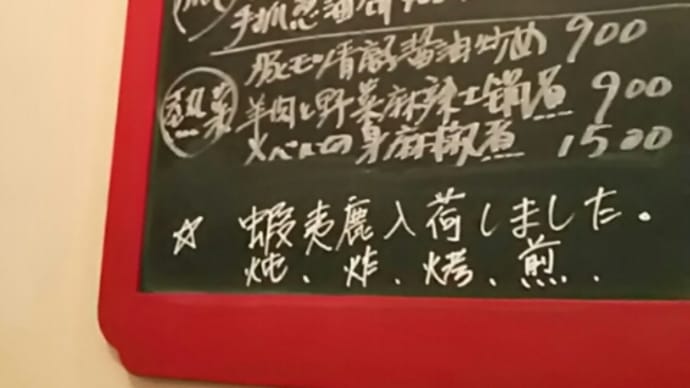 手抓葱油
熱菜
豚モツ情 醤油炒め 900
羊肉と野菜麻辣土鍋煮 900
メバルの 身麻椒煮 1500
☆ 蝦夷鹿入荷しました。
炖、炸、烤、煎、